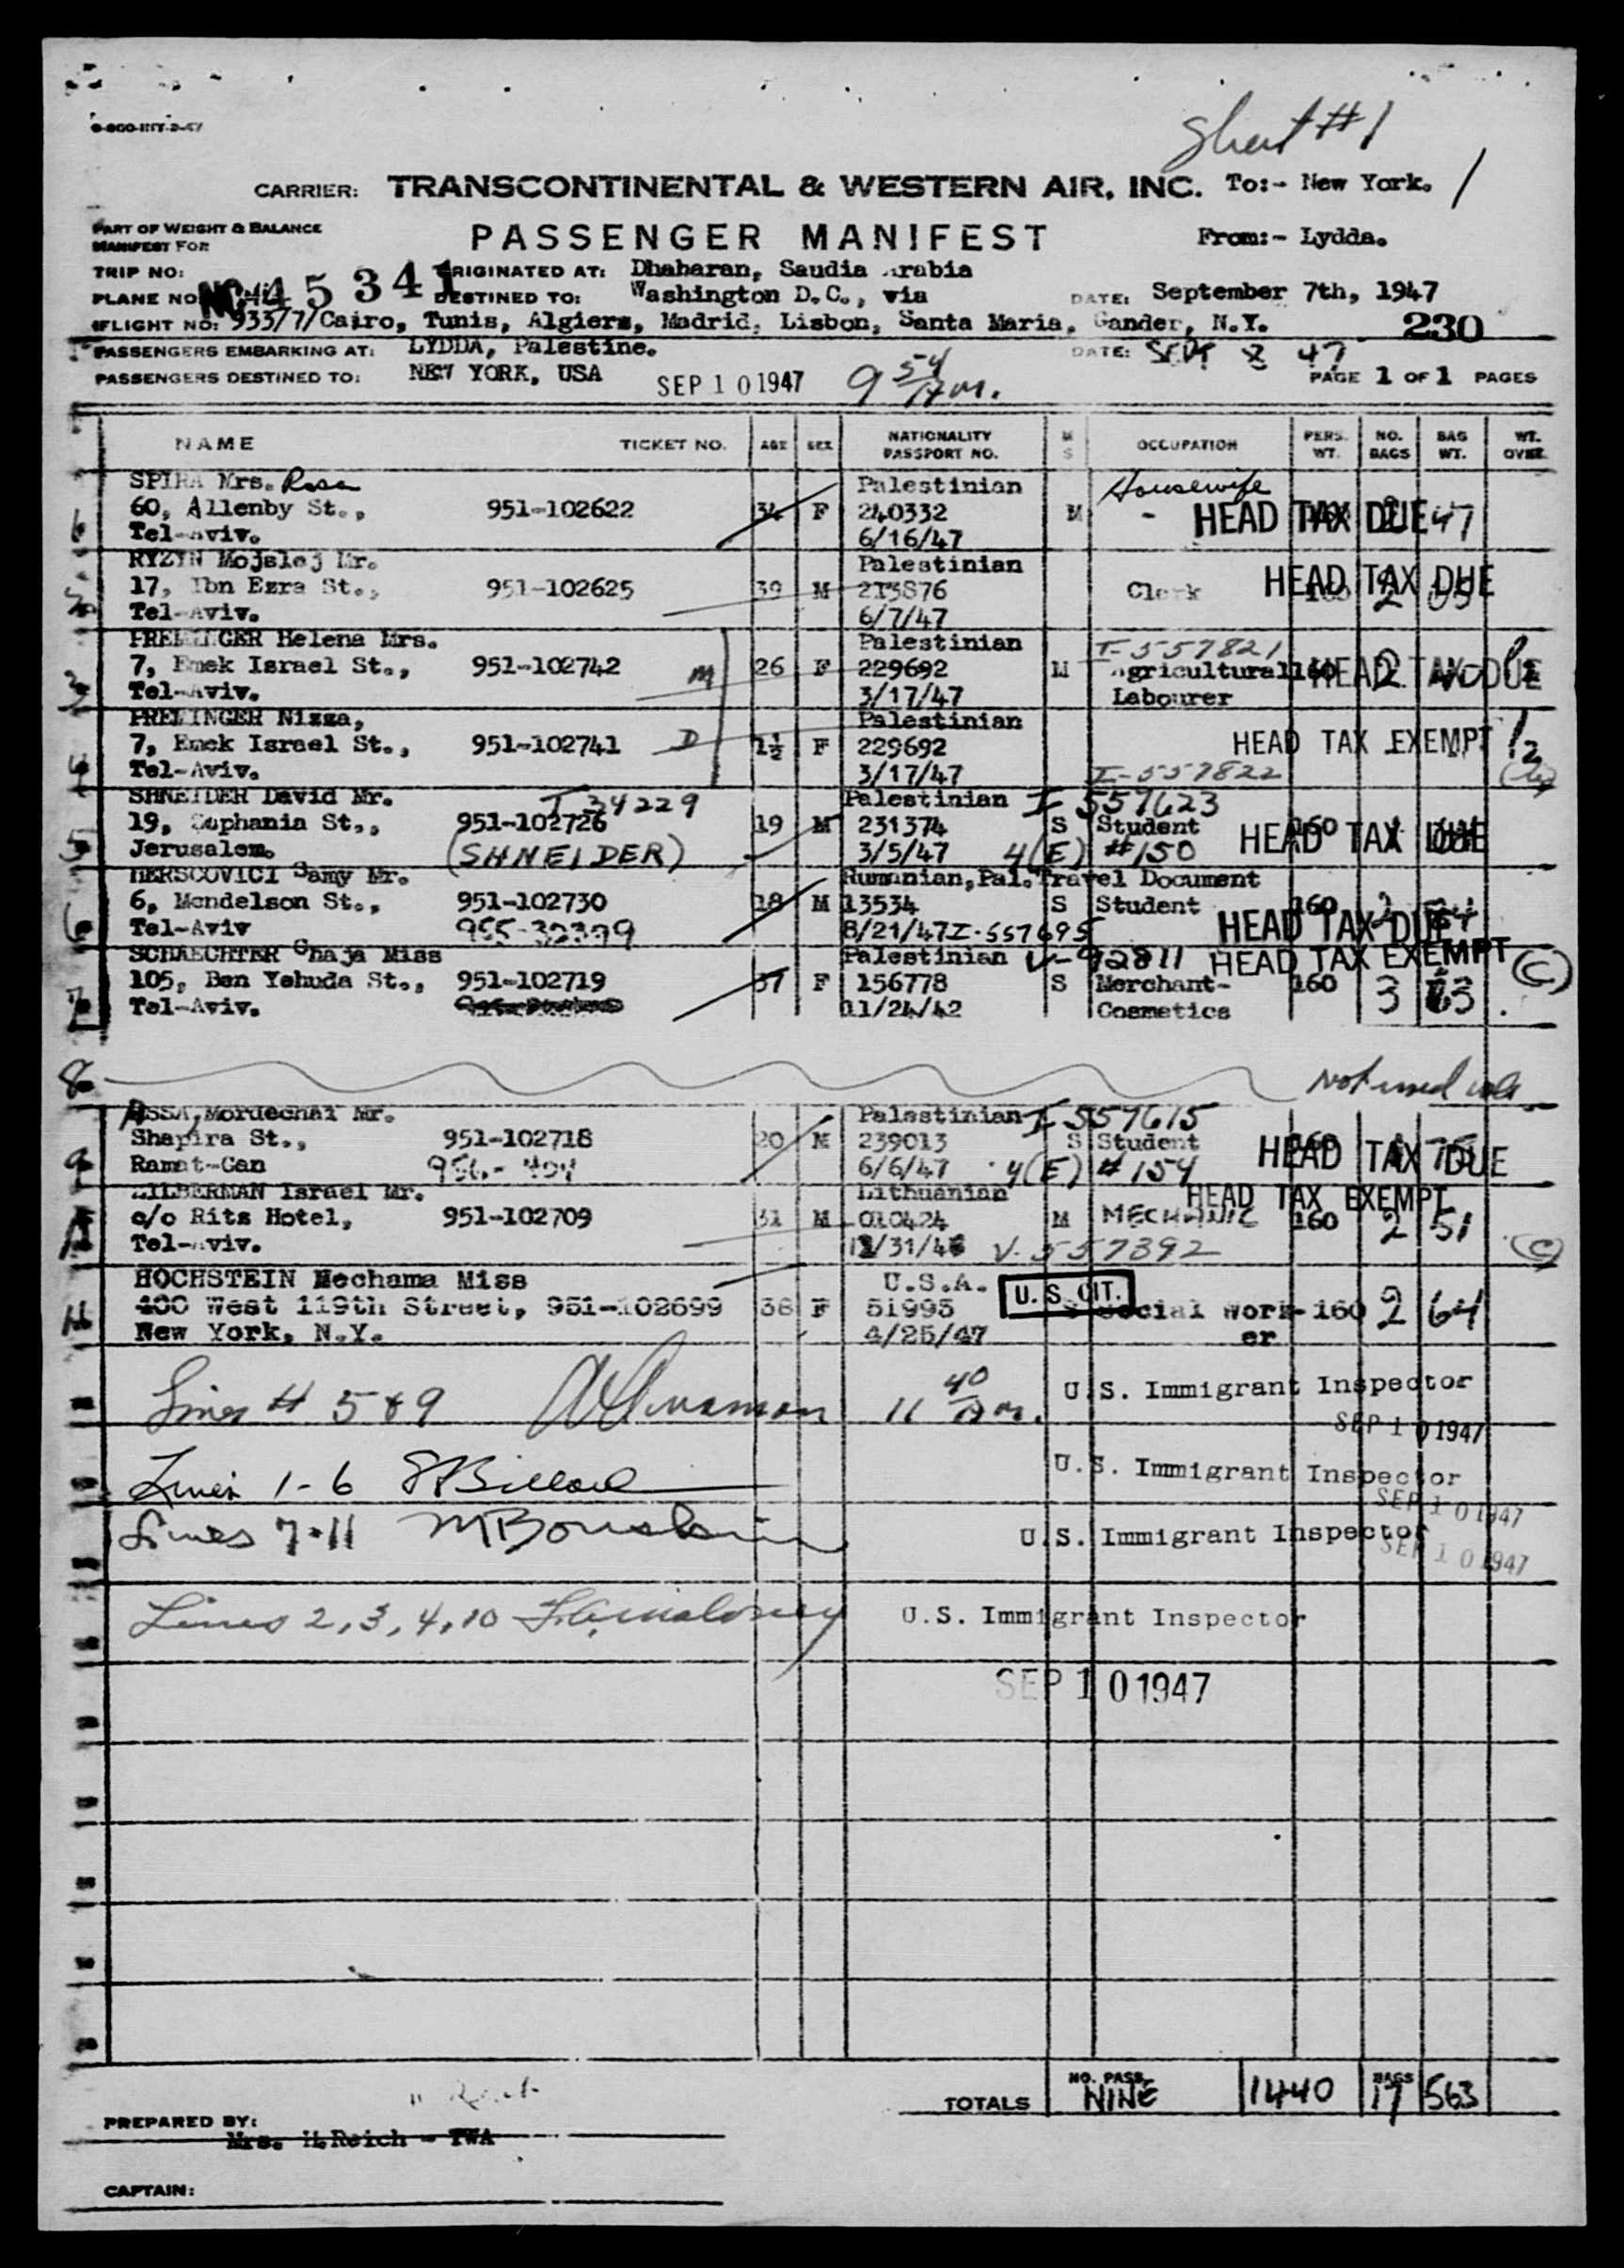 Sheet #1
CARRIER: TRANSCONTINENTAL & WESTERN AIR, INC. To:- New York. /
PART OF WEIGHT & BALANCE
MANIFEST FOR
PASSENGER MANIFEST
From:- Lydda.
TRIP NO:
ORIGINATED AT: Dhaharan, Saudia Arabia
PLANE NO: NC 45341 DESTINED TO: Washington D.C., via DATE: September 7th, 1947
FLIGHT NO: 933/7/Cairo, Tunis, Algiers, Madrid, Lisbon, Santa Maria, Gander, N.Y. 230
PASSENGERS EMBARKING AT: LYDDA, Palestine. DATE: SEPT 8 47
PASSENGERS DESTINED TO: NEW YORK, USA SEP 10 1947 9 54 AM. PAGE 1 OF 1 PAGES
NAME TICKET NO. AGE SEX NATIONALITY PASSPORT NO. M S OCCUPATION PERS. WT. NO. BAGS BAG WT. WT. OVER
SPIRA Mrs. Rosa Palestinian Housewife
60, Allenby St., 951-102622 34 F 240332 M - HEAD TAX DUE 47
Tel-Aviv. 6/16/47
RYZIN Mojslej Mr. Palestinian
2 17, Ibn Ezra St., 951-102625 39 M 213876 Clerk HEAD TAX DUE
Tel-Aviv. 6/7/47
PREMINGER Helena Mrs. Palestinian I-557821
3 7, Emek Israel St., 951-102742 M 26 F 229692 M Agricultural 160 HEAD TAX DUE
Tel-Aviv. 3/17/47 Labourer
PREMINGER Nizza, Palestinian
4 7, Emek Israel St., 951-102741 D 1½ F 229692 HEAD TAX EXEMPT
Tel-Aviv. 3/17/47 I-557822
SHNEIDER David Mr. T-34229 Palestinian I 557623
5 19, Sophania St., 951-102726 19 M 231374 S Student 160 HEAD TAX DUE
Jerusalem. (SHNEIDER) 3/5/47 4(E) #150
HERSCOVICI Samy Mr. Rumanian, Pal. Travel Document
6 6, Mendelson St., 951-102730 18 M 13534 S Student 160
Tel-Aviv 955-30399 8/21/47 I-557695 HEAD TAX DUE
SCHAECHTER Chaja Miss Palestinian V-92811 HEAD TAX EXEMPT (C)
7 105, Ben Yehuda St., 951-102719 37 F 156778 S Merchant- 160 3 63
Tel-Aviv. 11/24/42 Cosmetics
8 Not used
ASSA, Mordechai Mr. Palestinian I 557615
9 Shapira St., 951-102718 20 M 239013 S Student HEAD TAX DUE
Ramat-Gan 6/6/47 4(E) #154
ZILBERMAN Israel Mr. Lithuanian HEAD TAX EXEMPT
c/o Rits Hotel, 951-102709 31 M 010424 M MECHANIC 160 2 51
Tel-Aviv. 12/31/46 V. 557392 (C)
HOCHSTEIN Nechama Miss U.S.A. U.S. CIT.
11 400 West 119th Street, 951-102699 36 F 51995 S Social Work- 160 2 64
New York, N.Y. 4/25/47 er
Lines # 5 & 9 11 40 AM. U.S. Immigrant Inspector
SEP 10 1947
Lines 1-6 U.S. Immigrant Inspector
SEP 10 1947
Lines 7-11 U.S. Immigrant Inspector
SEP 10 1947
Lines 2, 3, 4, 10 U.S. Immigrant Inspector
SEP 10 1947
TOTALS NO. PASS. NINE 1440 BAGS 17 563
PREPARED BY: Mrs. H.Reich - TWA
CAPTAIN: